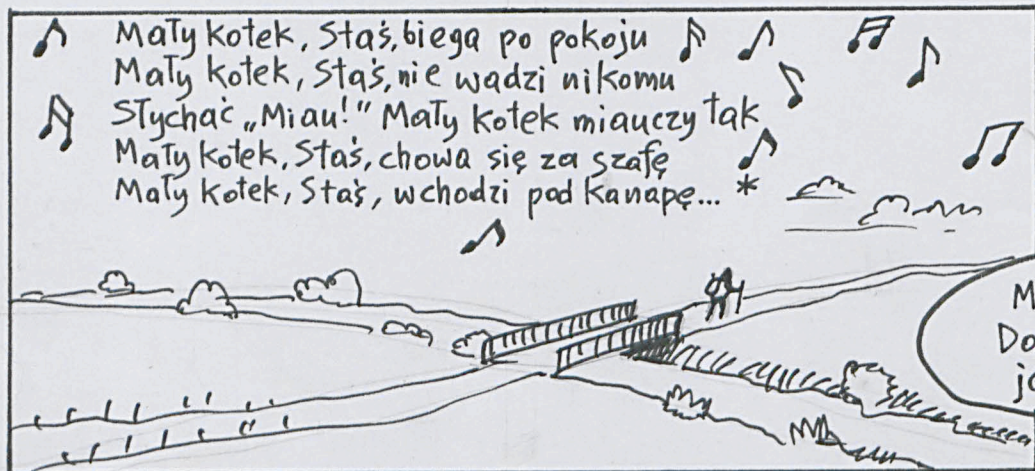 Mały kotek, Staś, biega po pokoju
Mały kotek, Staś, nie wadzi nikomu
Słychać „Miau!" Mały kotek miauczy tak
Mały kotek, Staś, chowa się za szafę
Mały kotek, Staś, wchodzi pod kanapę... *
M
Do